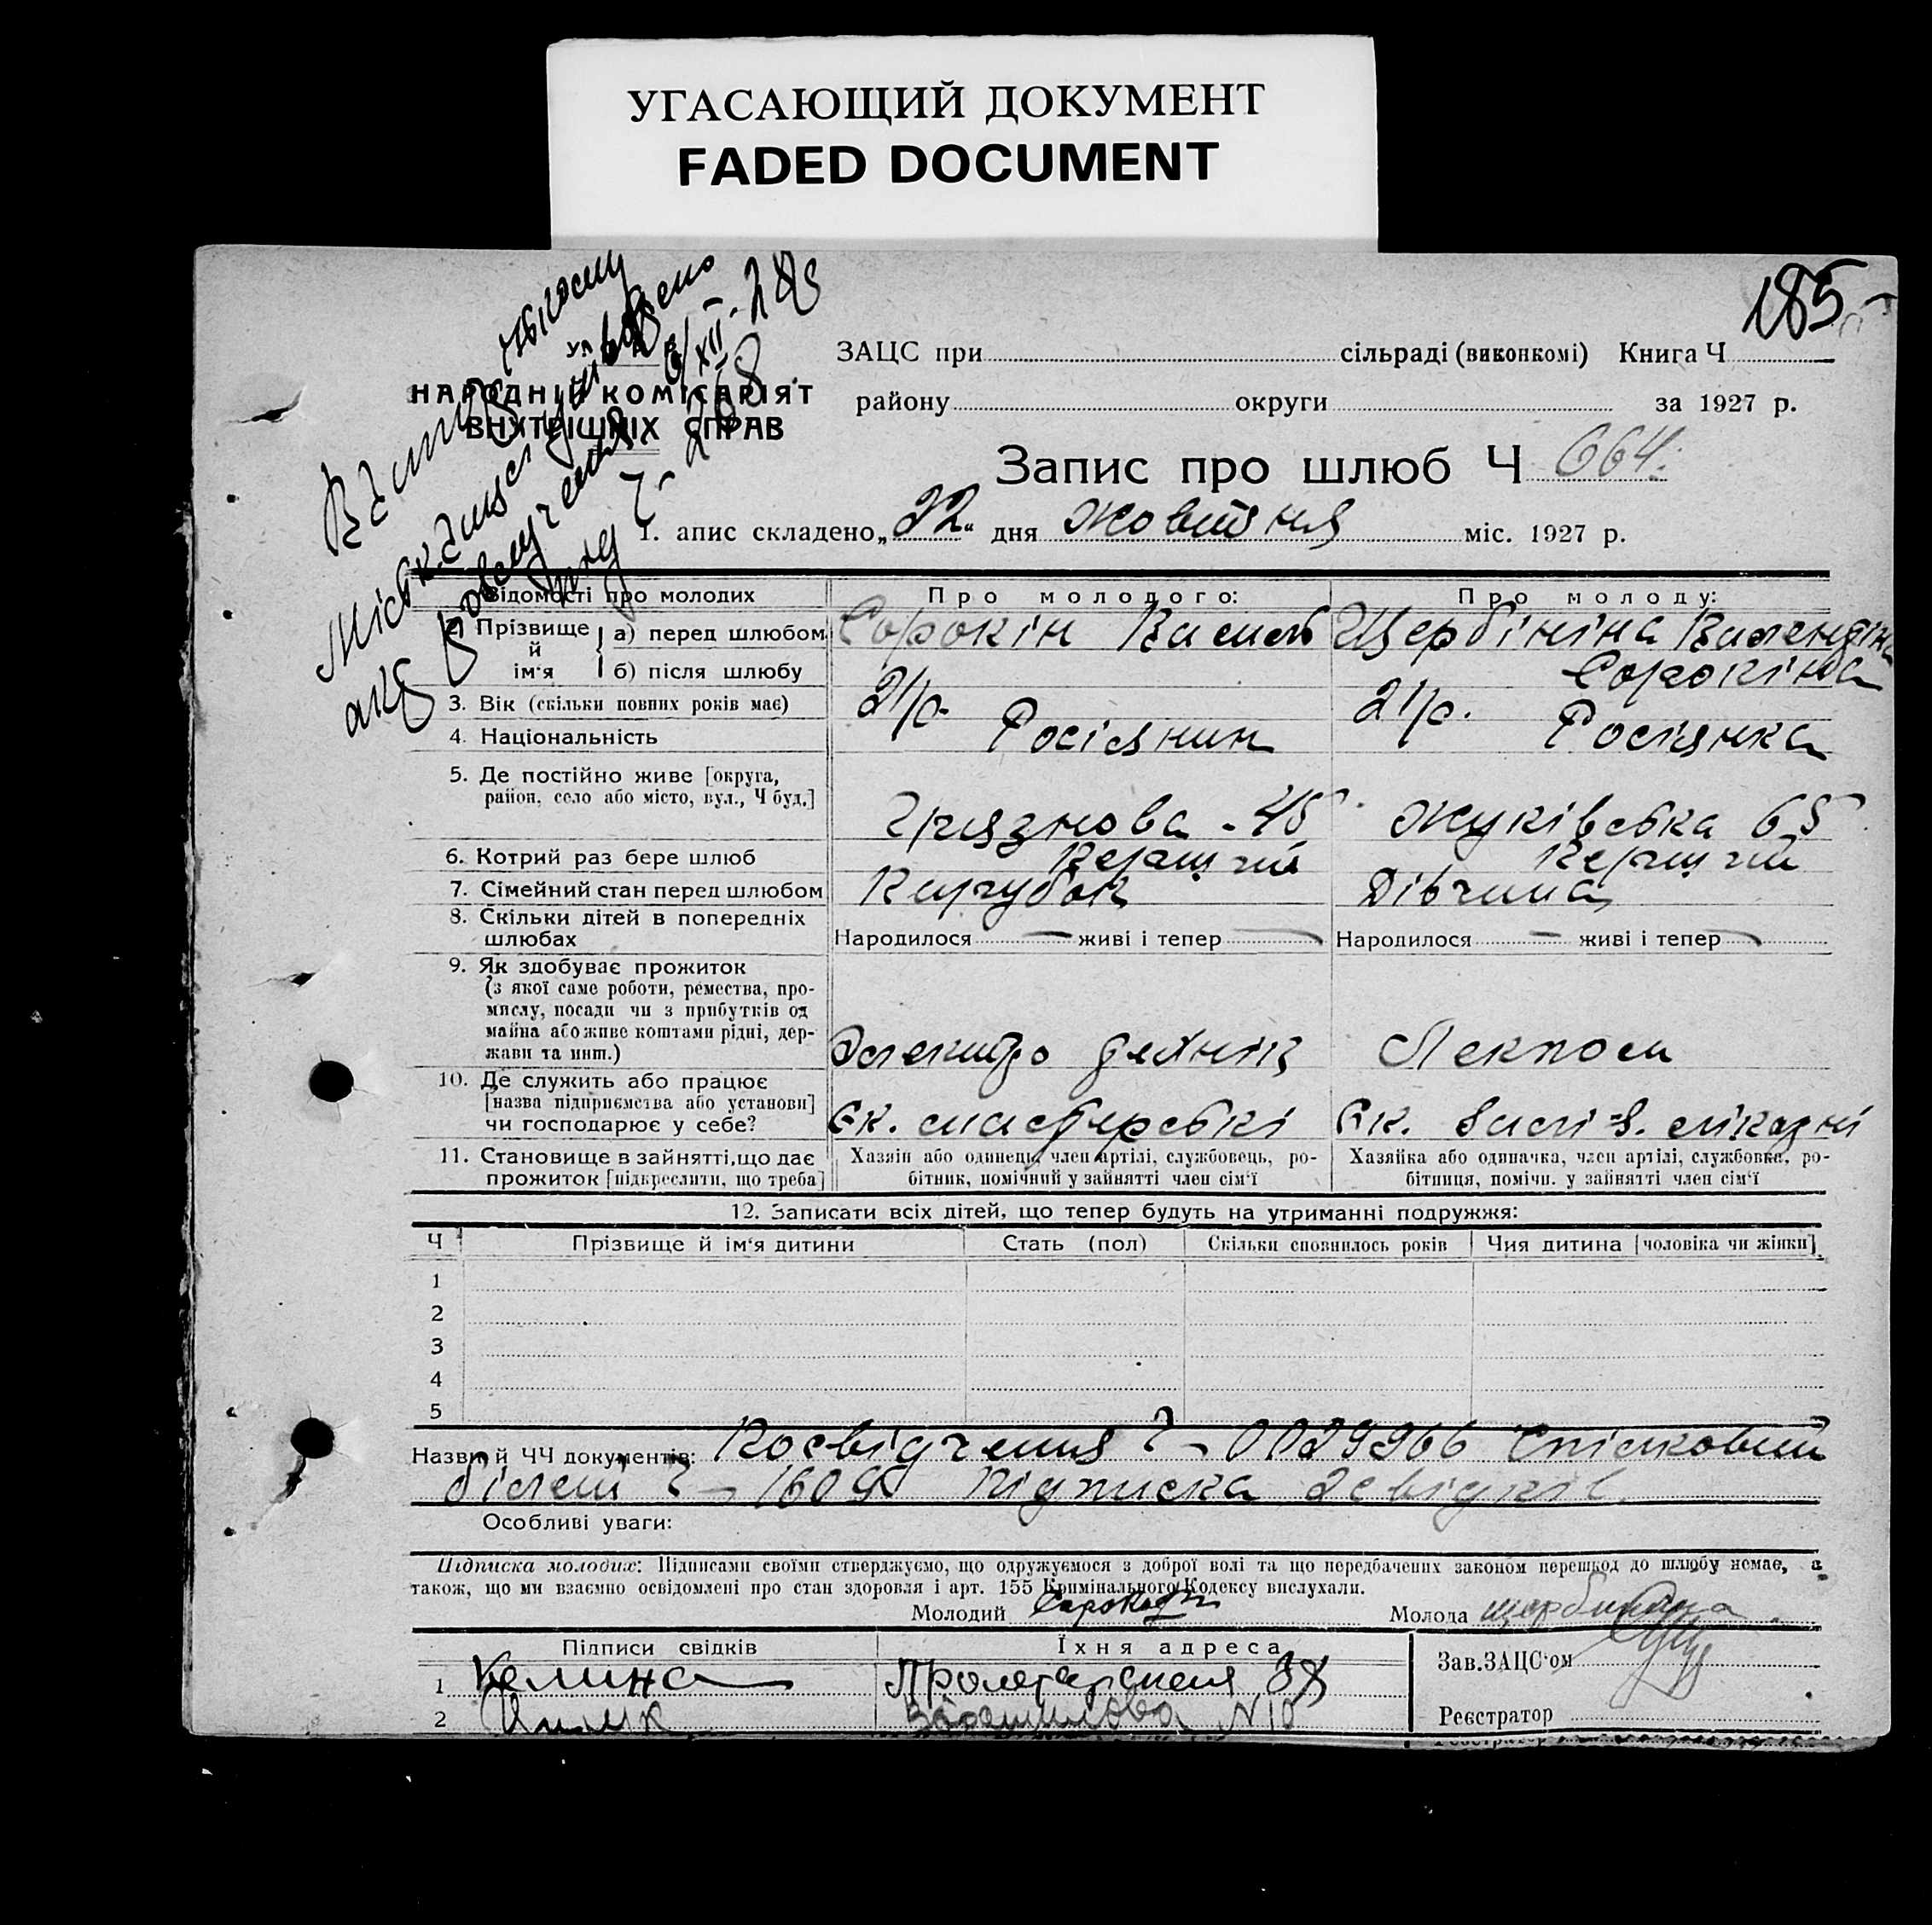 УГАСАЮЩИЙ ДОКУМЕНТ
FADED DOCUMENT
185
НАРОДНІЙ КОМІСАРІЯТ
ВНУТРІШНІХ СПРАВ
6/XII-28
ЗАЦС при сільраді (виконкомі) Книга Ч
району округи за 1927 р.
Запис про шлюб Ч 664.
1. апис складено „22" дня жовтня міс. 1927 р.
Відомості про молодих
Про молодого:
Про молоду:
2. Прізвище й ім'я
а) перед шлюбом
Сорокін
Щербініна
б) після шлюбу
Сорокіна
3. Вік (скільки повних років має)
21 р.
21 р.
4. Національність
Росіянин
Росіянка
5. Де постійно живе [округа,
район, село або місто, вул., Ч буд.]
Грязнова - 45
Жуківська 65
6. Котрий раз бере шлюб
Перший
Перший
7. Сімейний стан перед шлюбом
Парубок
Дівчина
8. Скільки дітей в попередніх
шлюбах
Народилося — живі і тепер —
Народилося — живі і тепер —
9. Як здобуває прожиток
(з якої саме роботи, ремества, про-
мислу, посади чи з прибутків од
майна або живе коштами рідні, дер-
жави та инш.)
Електро технік
Лекпом
10. Де служить або працює
[назва підприємства або установи]
чи господарює у себе?
Єк. майстерські
Єк. лікарні
11. Становище в зайнятті, що дає
прожиток [підкреслити, що треба]
Хазяїн або одинець, член артілі, службовець, ро-
бітник, помічний у зайнятті член сім'ї
Хазяйка або одиначка, член артілі, службовка, ро-
бітниця, помічн. у зайнятті член сім'ї
12. Записати всіх дітей, що тепер будуть на утриманні подружжя:
Ч
Прізвище й ім'я дитини
Стать (пол)
Скільки сповнилось років
Чия дитина [чоловіка чи жінки]
1
2
3
4
5
Назви й ЧЧ документів: Посвідчення Ч - 0029966
білет Ч - Підписка 2 свідків.
Особливі уваги:
Підписка молодих: Підписами своїми стверджуємо, що одружуємося з доброї волі та що передбачених законом перешкод до шлюбу немає, а
також, що ми взаємно освідомлені про стан здоровля і арт. 155 Кримінального Кодексу вислухали.
Молодий
Молода Щербинина
Підписи свідків
Їхня адреса
Зав.ЗАЦС'ом
1
Пролетарская
2
N10
Реєстратор